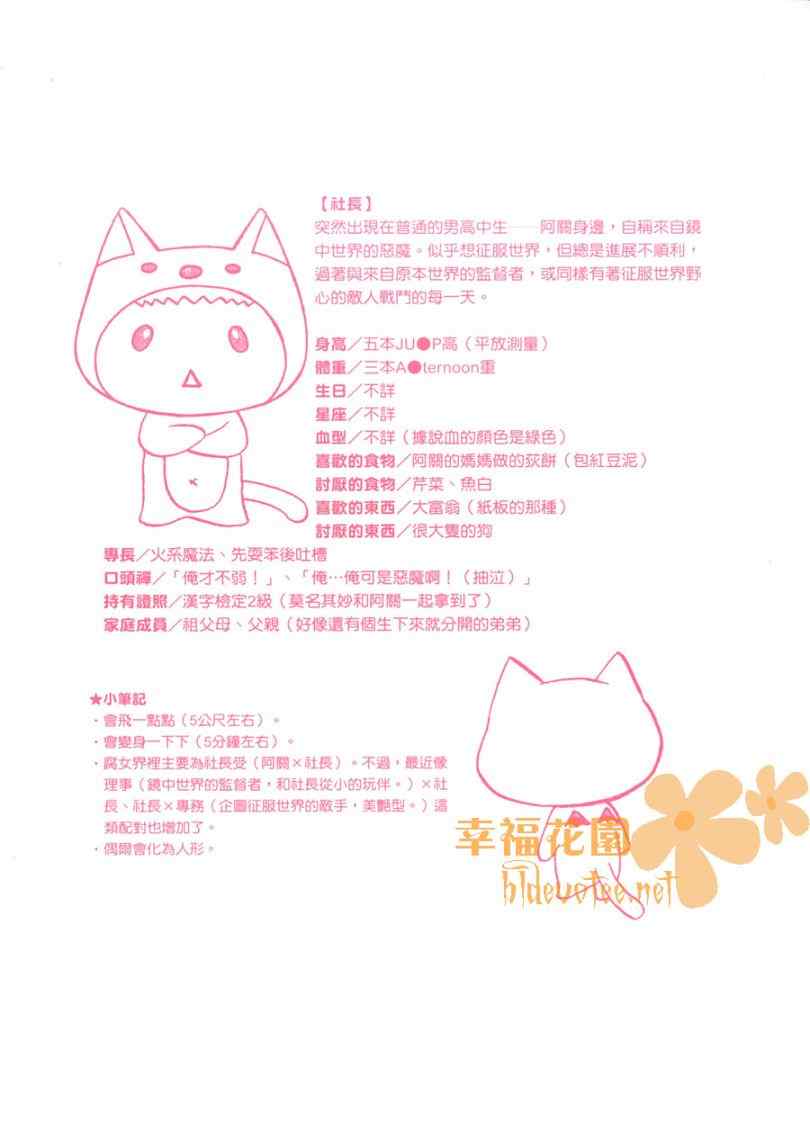 【社長】
突然出現在普通的男高中生——阿關身邊，自稱來自鏡
中世界的惡魔。似乎想征服世界，但總是進展不順利，
過著與來自原本世界的監督者，或同樣有著征服世界野
心的敵人戰鬥的每一天。
身高／五本JU●P高（平放測量）
體重／三本A●ternoon重
生日／不詳
星座／不詳
血型／不詳（據說血的顏色是綠色）
喜歡的食物／阿關的媽媽做的荻餅（包紅豆泥）
討厭的食物／芹菜、魚白
喜歡的東西／大富翁（紙板的那種）
討厭的東西／很大隻的狗
專長／火系魔法、先耍笨後吐槽
口頭禪／「俺才不弱！」、「俺…俺可是惡魔啊！（抽泣）」
持有證照／漢字檢定2級（莫名其妙和阿關一起拿到了）
家庭成員／祖父母、父親（好像還有個生下來就分開的弟弟）
★小筆記
・會飛一點點（5公尺左右）。
・會變身一下下（5分鐘左右）。
・腐女界裡主要為社長受（阿關×社長）。不過，最近像
理事（鏡中世界的監督者，和社長從小的玩伴。）×社
長、社長×專務（企圖征服世界的敵手，美艷型。）這
類配對也增加了。
・偶爾會化為人形。
幸福花園
bldevotee.net